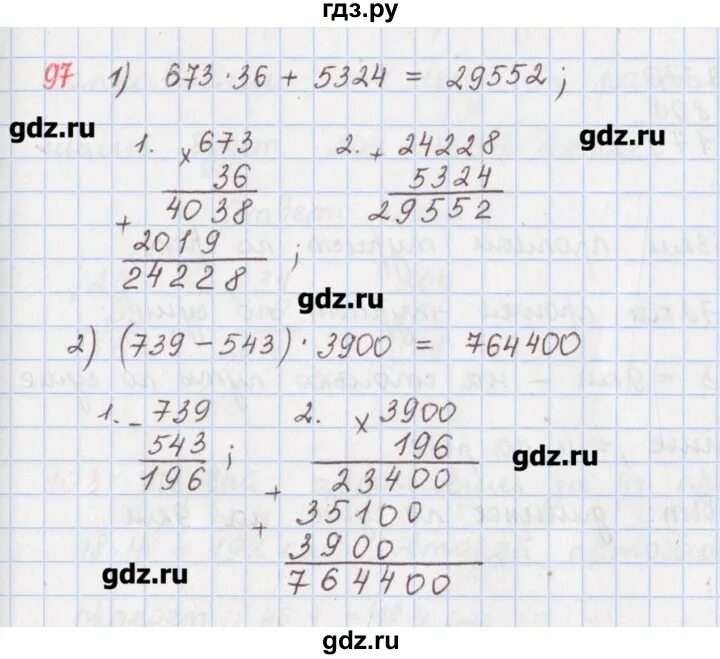 гдз.ру
97 1) 673 · 36 + 5324 = 29552;
gdz.ru
gdz.ru
1. × 673
36
4038
+ 2019
24228 ;
2. + 24228
5324
29552
gdz.ru
2) (739 – 543) · 3900 = 764400
1. – 739
543
196 ;
2. × 3900
196
+ 23400
+ 35100
3900
764400
gdz.ru
gdz.ru
gdz.ru